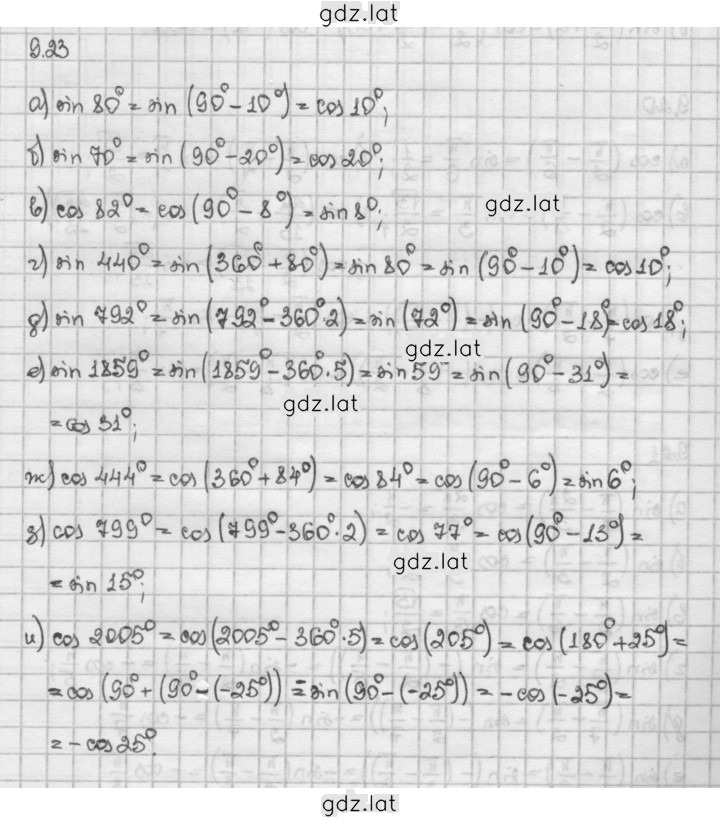 gdz.lat
9.23
а) sin 80° = sin (90° - 10°) = cos 10°;
б) sin 70° = sin (90° - 20°) = cos 20°;
в) cos 82° = cos (90° - 8°) = sin 8°;
gdz.lat
г) sin 440° = sin (360° + 80°) = sin 80° = sin (90° - 10°) = cos 10°;
д) sin 792° = sin (792° - 360°·2) = sin (72°) = sin (90° - 18°) = cos 18°;
gdz.lat
е) sin 1859° = sin (1859° - 360°·5) = sin 59° = sin (90° - 31°) =
gdz.lat
= cos 31°;
ж) cos 444° = cos (360° + 84°) = cos 84° = cos (90° - 6°) = sin 6°;
з) cos 799° = cos (799° - 360°·2) = cos 77° = cos (90° - 13°) =
gdz.lat
= sin 15°;
и) cos 2005° = cos (2005° - 360°·5) = cos (205°) = cos (180° + 25°) =
= cos (90° + (90° - (-25°)) = sin (90° - (-25°)) = - cos (-25°) =
= - cos 25°.
gdz.lat